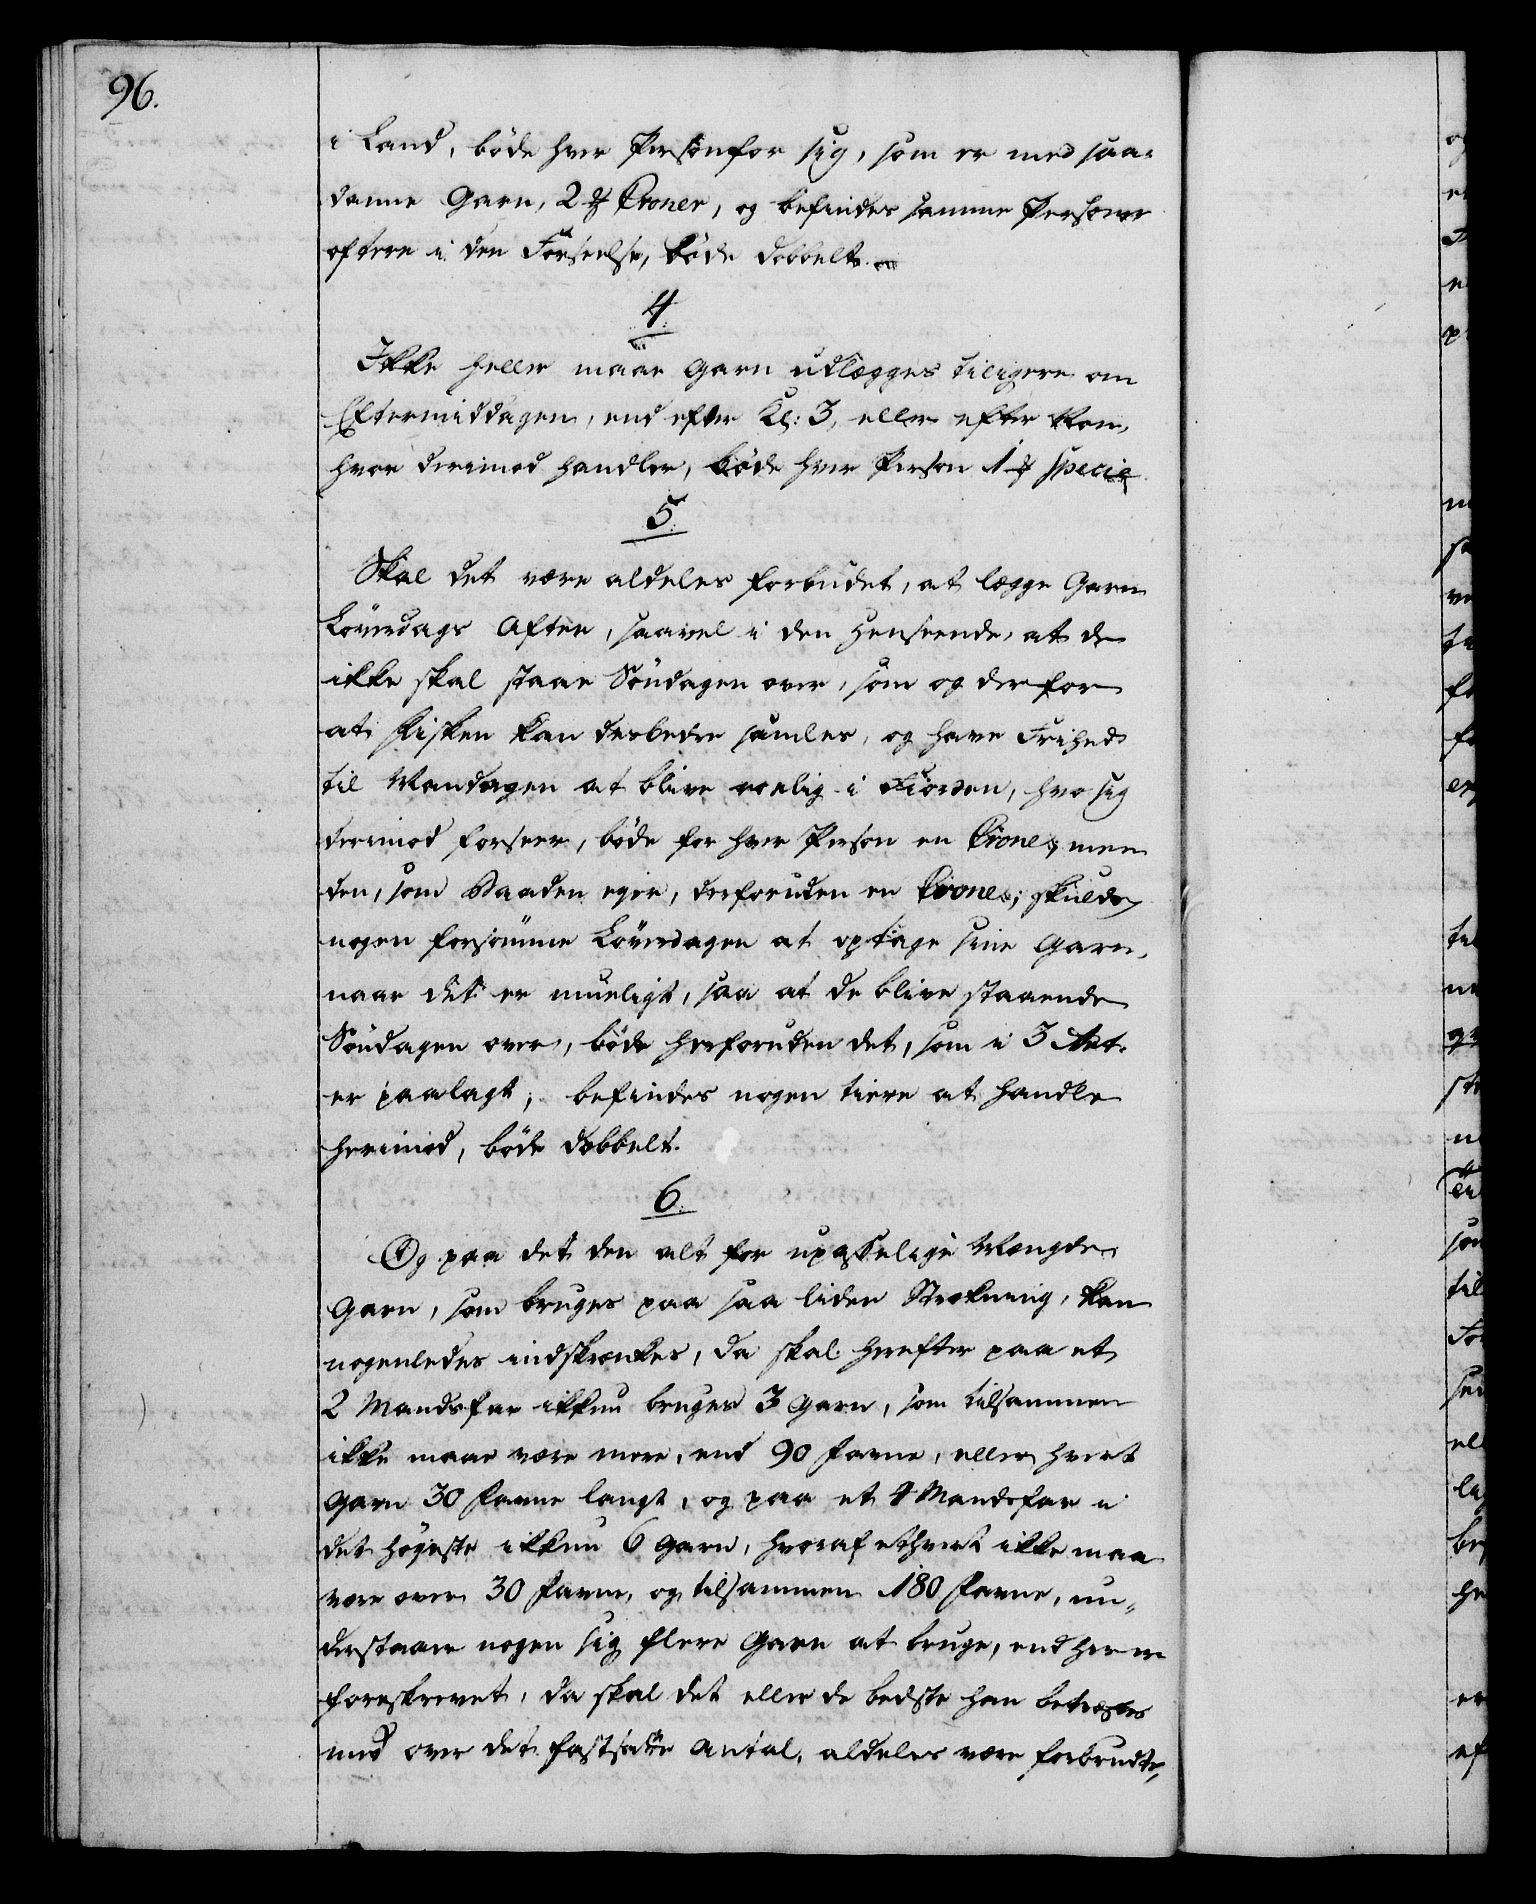 96.
i Land, böde hver Person for sig, som er med saa-
danne Garn, 2 Croner, og befindes samme Personer
oftere i den Forseelse, böde dobbelt.
4.
Ikke heller maae Garn udlægges tiligere om
Eftermiddagen, end efter Kl: 3, eller efter Non,
hvor derimod handler, böde hver Person 1 specie
5.
Skal det være aldeles forbudet, at lægge Garn
Löverdags Aften, saavel i den Henseende, at de
ikke skal staae Söndagen over, som og derfor
at Fisken kan desbedre samles, og have Frihed
til Mandagen at blive roelig i Fiorden, hvo sig
derimod forseer, böde for hver Person en Crone, men
den, som Baaden eger, derforuden en Crone; skulde
nogen forsömme Löverdagen at optage sine Garn,
naar det er mueligt, saa at de blive staaende
Söndagen over, böde herforuden det, som i 3 Art.
er paalagt; befindes nogen tiere at handle
herimod, böde dobbelt.
6.
Og paa det den alt for upasselige Mængde
Garn, som bruges paa saa liden Strekning, kan
nogenledes indskrænkes, da skal herefter paa et
2 Mandsfar ikkun bruges 3 Garn, som tilsammen
ikke maae være mere, end 90 Favne, eller hvert
Garn 30 Favne langt, og paa et 4 Mandsfar i
det högeste ikkun 6 Garn, hvoraf ethvert ikke maa
være over 30 Favne, og tilsammen 180 Favne, un-
derstaaer nogen sig flere Garn at bruge, end her er
foreskrevet, da skal det eller de bedste han betræffes
med over det fastsatte Antal, aldeles være forbrudte,